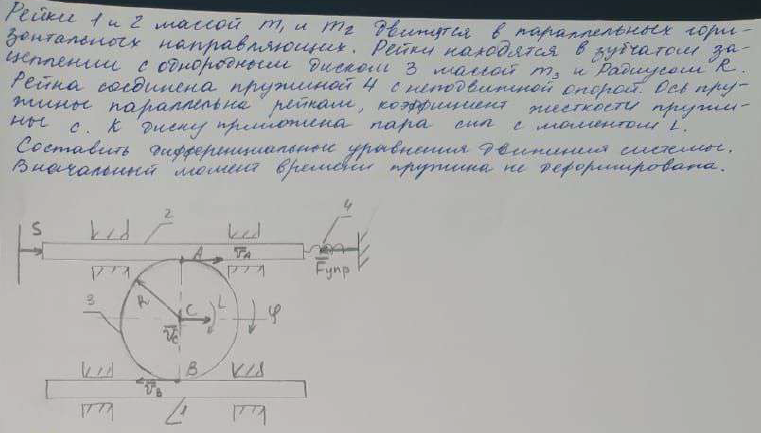 Рейки 1 и 2 массой m₁ и m₂ движутся в параллельных гори-
зонтальных направляющих. Рейки находятся в зубчатом за-
цеплении с однородным диском 3 массой m₃ и Радиусом R.
Рейка соединена пружиной 4 с неподвижной опорой. Ось пру-
жины параллельна рейкам, коэффициент жесткости пружи-
ны с. К диску приложена пара сил с моментом L.
Составить дифференциальные уравнения движения системы.
В начальный момент времени пружина не деформирована.
S
2
4
A
v̅A
F̅упр
3
R
C
L
φ
v̅C
B
v̅B
1